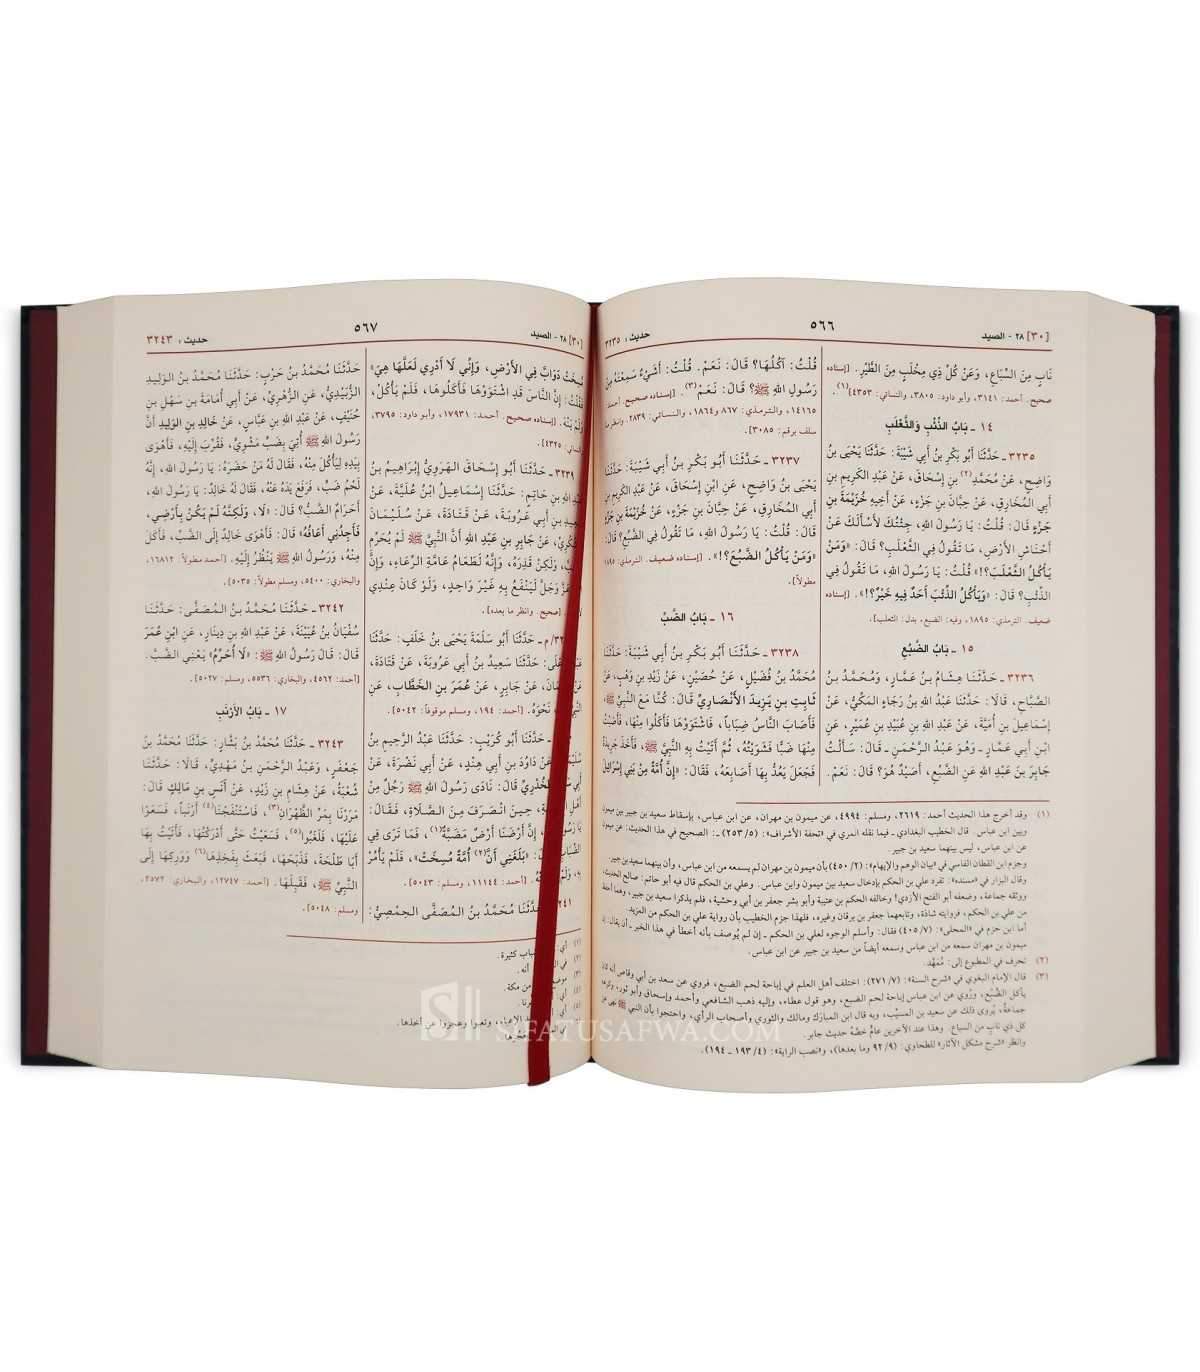 [٣٠] ٢٨ - الصيد
٥٦٦
حديث: ٣٢٣٥
نَابٍ مِنَ السِّبَاعِ، وَعَنْ كُلِّ ذِي مِخْلَبٍ مِنَ الطَّيْرِ. [إسناده
صحيح. أحمد: ٣١٤١، وأبو داود: ٣٨٠٥، والنسائي: ٤٣٥٣](١).
١٤ ـ بَابُ الذِّئْبِ وَالثَّعْلَبِ
٣٢٣٥ ـ حَدَّثَنَا أَبُو بَكْرِ بنُ أَبِي شَيْبَةَ: حَدَّثَنَا يَحْيَى بنُ
وَاضِحٍ، عَنْ مُحَمَّدِ(٢) بنِ إِسْحَاقَ، عَنْ عَبْدِ الكَرِيمِ بنِ
أَبِي المُخَارِقِ، عَنْ حِبَّانَ بنِ جَزْءٍ، عَنْ أَخِيهِ خُزَيْمَةَ بنِ
جَزْءٍ قَالَ: قُلْتُ: يَا رَسُولَ اللهِ، جِئْتُكَ لأَسْأَلَكَ عَنْ
أَحْنَاشِ الأَرْضِ، مَا تَقُولُ فِي الثَّعْلَبِ؟ قَالَ: «وَمَنْ
يَأْكُلُ الثَّعْلَبَ؟!» قُلْتُ: يَا رَسُولَ اللهِ، مَا تَقُولُ فِي
الذِّئْبِ؟ قَالَ: «وَيَأْكُلُ الذِّئْبَ أَحَدٌ فِيهِ خَيْرٌ؟!». [إسناده
ضعيف. الترمذي: ١٨٩٥، وفيه: الضبع، بدل: الثعلب].
١٥ ـ بَابُ الضَّبُعِ
٣٢٣٦ ـ حَدَّثَنَا هِشَامُ بنُ عَمَّارٍ، وَمُحَمَّدُ بنُ
الصَّبَّاحِ، قَالَا: حَدَّثَنَا عَبْدُ اللهِ بنُ رَجَاءٍ المَكِّيُّ، عَنْ
إِسْمَاعِيلَ بنِ أُمَيَّةَ، عَنْ عَبْدِ اللهِ بنِ عُبَيْدِ بنِ عُمَيْرٍ، عَنِ
ابْنِ أَبِي عَمَّارٍ ـ وَهُوَ عَبْدُ الرَّحْمَنِ ـ قَالَ: سَأَلْتُ
جَابِرَ بنَ عَبْدِ اللهِ عَنِ الضَّبُعِ، أَصَيْدٌ هُوَ؟ قَالَ: نَعَمْ.
قُلْتُ: آكُلُهَا؟ قَالَ: نَعَمْ. قُلْتُ: أَشَيْءٌ سَمِعْتَهُ مِنْ
رَسُولِ اللهِ ﷺ؟ قَالَ: نَعَمْ(٣). [إسناده صحيح. أحمد:
١٤١٦٥، والترمذي: ٨٦٧ و١٨٦٤، والنسائي: ٢٨٣٩. وانظر ما
سلف برقم: ٣٠٨٥].
٣٢٣٧ ـ حَدَّثَنَا أَبُو بَكْرِ بنُ أَبِي شَيْبَةَ: حَدَّثَنَا
يَحْيَى بنُ وَاضِحٍ، عَنِ ابْنِ إِسْحَاقَ، عَنْ عَبْدِ الكَرِيمِ بنِ
أَبِي المُخَارِقِ، عَنْ حِبَّانَ بنِ جَزْءٍ، عَنْ خُزَيْمَةَ بنِ جَزْءٍ
قَالَ: قُلْتُ: يَا رَسُولَ اللهِ، مَا تَقُولُ فِي الضَّبُعِ؟ قَالَ:
«وَمَنْ يَأْكُلُ الضَّبُعَ؟!». [إسناده ضعيف. الترمذي: ١٨٩٥
مطولاً].
١٦ ـ بَابُ الضَّبِّ
٣٢٣٨ ـ حَدَّثَنَا أَبُو بَكْرِ بنُ أَبِي شَيْبَةَ: حَدَّثَنَا
مُحَمَّدُ بنُ فُضَيْلٍ، عَنْ حُصَيْنٍ، عَنْ زَيْدِ بنِ وَهْبٍ، عَنْ
ثَابِتِ بنِ يَزِيدَ الأَنْصَارِيِّ قَالَ: كُنَّا مَعَ النَّبِيِّ ﷺ،
فَأَصَابَ النَّاسُ ضِبَاباً، فَاشْتَوَوْهَا فَأَكَلُوا مِنْهَا، فَأَصَبْتُ
مِنْهَا ضَبًّا فَشَوَيْتُهُ، ثُمَّ أَتَيْتُ بِهِ النَّبِيَّ ﷺ، فَأَخَذَ جَرِيدَةً
فَجَعَلَ يَعُدُّ بِهَا أَصَابِعَهُ، فَقَالَ: «إِنَّ أُمَّةً مِنْ بَنِي إِسْرَائِيلَ
(١) وقد أخرج هذا الحديث أحمد: ٢٦١٩، ومسلم: ٤٩٩٤، عن ميمون بن مهران، عن ابن عباس، بإسقاط سعيد بن جبير بين ميمون
وبين ابن عباس. قال الخطيب البغدادي ـ فيما نقله المزي في «تحفة الأشراف»: (٢٥٣/٥) ـ: الصحيح في هذا الحديث: عن ميمون
عن ابن عباس، ليس بينهما سعيد بن جبير.
وجزم ابن القطان الفاسي في «بيان الوهم والإيهام»: (٤٥٠/٢) بأن ميمون بن مهران لم يسمعه من ابن عباس، وأن بينهما سعيد بن جبير
وقال البزار في «مسنده»: تفرد علي بن الحكم بإدخال سعيد بين ميمون وابن عباس. وعلي بن الحكم قال فيه أبو حاتم: صالح الحديث،
ووثقه جماعة، وضعفه أبو الفتح الأزدي! وخالفه الحكم بن عتيبة وأبو بشر جعفر بن أبي وحشية، فلم يذكرا سعيد بن جبير، وهما أحفظ
من علي بن الحكم، فروايته شاذة، وتابعهما جعفر بن برقان وغيره، فلهذا جزم الخطيب بأن رواية علي بن الحكم من المزيد.
أما ابن حزم في «المحلى»: (٤٠٥/٧) فقال: وأسلم الوجوه لعلي بن الحكم ـ إن لم يُوصف بأنه أخطأ في هذا الخبر ـ أن يقال: إن
ميمون بن مهران سمعه من ابن عباس وسمعه أيضاً من سعيد بن جبير عن ابن عباس.
(٢) تحرف في المطبوع إلى: مُمَهِّد.
(٣) قال الإمام البغوي في «شرح السنة»: (٢٧١/٧): اختلف أهل العلم في إباحة لحم الضبع، فروي عن سعد بن أبي وقاص أنه كان
يأكل الضَّبُع، ورُوي عن ابن عباس إباحة لحم الضبع، وهو قول عطاء، وإليه ذهب الشافعي وأحمد وإسحاق وأبو ثور، وكرهه
جماعة، يُروى ذلك عن سعيد بن المسيَّب، وبه قال ابن المبارك ومالك والثوري وأصحاب الرأي، واحتجوا بأن النبي ﷺ نهى عن
كل ذي ناب من السباع. وهذا عند الآخرين عامٌّ خصَّه حديث جابر.
وانظر «شرح مشكل الآثار» للطحاوي: (٩٢/٩ وما بعدها)، و«نصب الراية»: (١٩٣/٤ ـ ١٩٤).
[٣٠] ٢٨ - الصيد
٥٦٧
حديث: ٣٢٤٣
مُسِخَتْ دَوَابَّ فِي الأَرْضِ، وَإِنِّي لَا أَدْرِي لَعَلَّهَا هِيَ»
فَقُلْتُ: إِنَّ النَّاسَ قَدِ اشْتَوَوْهَا فَأَكَلُوهَا، فَلَمْ يَأْكُلْ،
وَلَمْ يَنْهَ. [إسناده صحيح. أحمد: ١٧٩٣١، وأبو داود: ٣٧٩٥،
٤٣٢٥].
٣٢٣٩ ـ حَدَّثَنَا أَبُو إِسْحَاقَ الهَرَوِيُّ إِبْرَاهِيمُ بنُ
عَبْدِ اللهِ بنِ حَاتِمٍ: حَدَّثَنَا إِسْمَاعِيلُ ابْنُ عُلَيَّةَ، عَنْ
بنِ أَبِي عَرُوبَةَ، عَنْ قَتَادَةَ، عَنْ سُلَيْمَانَ
عَنْ جَابِرِ بنِ عَبْدِ اللهِ أَنَّ النَّبِيَّ ﷺ لَمْ يُحَرِّمِ
وَلَكِنْ قَذِرَهُ، وَإِنَّهُ لَطَعَامُ عَامَّةِ الرِّعَاءِ، وَإِنَّ
عَزَّ وَجَلَّ لَيَنْفَعُ بِهِ غَيْرَ وَاحِدٍ، وَلَوْ كَانَ عِنْدِي
[صحيح. وانظر ما بعده].
/م ـ حَدَّثَنَا أَبُو سَلَمَةَ يَحْيَى بنُ خَلَفٍ: حَدَّثَنَا
حَدَّثَنَا سَعِيدُ بنُ أَبِي عَرُوبَةَ، عَنْ قَتَادَةَ،
عَنْ جَابِرٍ، عَنْ عُمَرَ بنِ الخَطَّابِ، عَنِ
نَحْوَهُ. [أحمد: ١٩٤، ومسلم موقوفاً: ٥٠٤٢].
حَدَّثَنَا أَبُو كُرَيْبٍ: حَدَّثَنَا عَبْدُ الرَّحِيمِ بنُ
عَنْ دَاوُدَ بنِ أَبِي هِنْدٍ، عَنْ أَبِي نَضْرَةَ، عَنْ
الخُدْرِيِّ قَالَ: نَادَى رَسُولَ اللهِ ﷺ رَجُلٌ مِنْ
حِينَ انْصَرَفَ مِنَ الصَّلَاةِ، فَقَالَ:
إِنَّ أَرْضَنَا أَرْضٌ مَضَبَّةٌ(١)، فَمَا تَرَى فِي
«بَلَغَنِي أَنَّ(٢) أُمَّةً مُسِخَتْ»، فَلَمْ يَأْمُرْ
[أحمد: ١١١٤٤، ومسلم: ٥٠٤٣].
حَدَّثَنَا مُحَمَّدُ بنُ المُصَفَّى الحِمْصِيُّ:
حَدَّثَنَا مُحَمَّدُ بنُ حَرْبٍ: حَدَّثَنَا مُحَمَّدُ بنُ الوَلِيدِ
الزُّبَيْدِيُّ، عَنِ الزُّهْرِيِّ، عَنْ أَبِي أُمَامَةَ بنِ سَهْلِ بنِ
حُنَيْفٍ، عَنْ عَبْدِ اللهِ بنِ عَبَّاسٍ، عَنْ خَالِدِ بنِ الوَلِيدِ أَنَّ
رَسُولَ اللهِ ﷺ أُتِيَ بِضَبٍّ مَشْوِيٍّ، فَقُرِّبَ إِلَيْهِ، فَأَهْوَى
بِيَدِهِ لِيَأْكُلَ مِنْهُ، فَقَالَ لَهُ مَنْ حَضَرَهُ: يَا رَسُولَ اللهِ، إِنَّهُ
لَحْمُ ضَبٍّ، فَرَفَعَ يَدَهُ عَنْهُ، فَقَالَ لَهُ خَالِدٌ: يَا رَسُولَ اللهِ،
أَحَرَامٌ الضَّبُّ؟ قَالَ: «لَا، وَلَكِنَّهُ لَمْ يَكُنْ بِأَرْضِي،
فَأَجِدُنِي أَعَافُهُ» قَالَ: فَأَهْوَى خَالِدٌ إِلَى الضَّبِّ، فَأَكَلَ
مِنْهُ، وَرَسُولُ اللهِ ﷺ يَنْظُرُ إِلَيْهِ. [أحمد مطولاً: ١٦٨١٢،
والبخاري: ٥٤٠٠، ومسلم مطولاً: ٥٠٣٥].
٣٢٤٢ ـ حَدَّثَنَا مُحَمَّدُ بنُ المُصَفَّى: حَدَّثَنَا
سُفْيَانُ بنُ عُيَيْنَةَ، عَنْ عَبْدِ اللهِ بنِ دِينَارٍ، عَنِ ابْنِ عُمَرَ
قَالَ: قَالَ رَسُولُ اللهِ ﷺ: «لَا أُحَرِّمُ» يَعْنِي الضَّبَّ.
[أحمد: ٤٥٦٢، والبخاري: ٥٥٣٦، ومسلم: ٥٠٢٧].
١٧ ـ بَابُ الأَرْنَبِ
٣٢٤٣ ـ حَدَّثَنَا مُحَمَّدُ بنُ بَشَّارٍ: حَدَّثَنَا مُحَمَّدُ بنُ
جَعْفَرٍ، وَعَبْدُ الرَّحْمَنِ بنُ مَهْدِيٍّ، قَالَا: حَدَّثَنَا
شُعْبَةُ، عَنْ هِشَامِ بنِ زَيْدٍ، عَنْ أَنَسِ بنِ مَالِكٍ قَالَ:
مَرَرْنَا بِمَرِّ الظَّهْرَانِ(٣)، فَاسْتَنْفَجْنَا(٤) أَرْنَباً، فَسَعَوْا
عَلَيْهَا، فَلَغَبُوا(٥)، فَسَعَيْتُ حَتَّى أَدْرَكْتُهَا، فَأَتَيْتُ بِهَا
أَبَا طَلْحَةَ، فَذَبَحَهَا، فَبَعَثَ بِفَخِذِهَا(٦) وَوَرِكِهَا إِلَى
النَّبِيِّ ﷺ، فَقَبِلَهَا. [أحمد: ١٢٧٤٧، والبخاري: ٢٥٧٢،
ومسلم: ٥٠٤٨].
(١) أي: كثيرة.
(٢) في أنه.
(٣) موضع من مكة.
(٤) أي:
(٥) أي: الإعياء، وتعبوا وعجزوا عن أخذها.
SIFATUSAFWA.COM